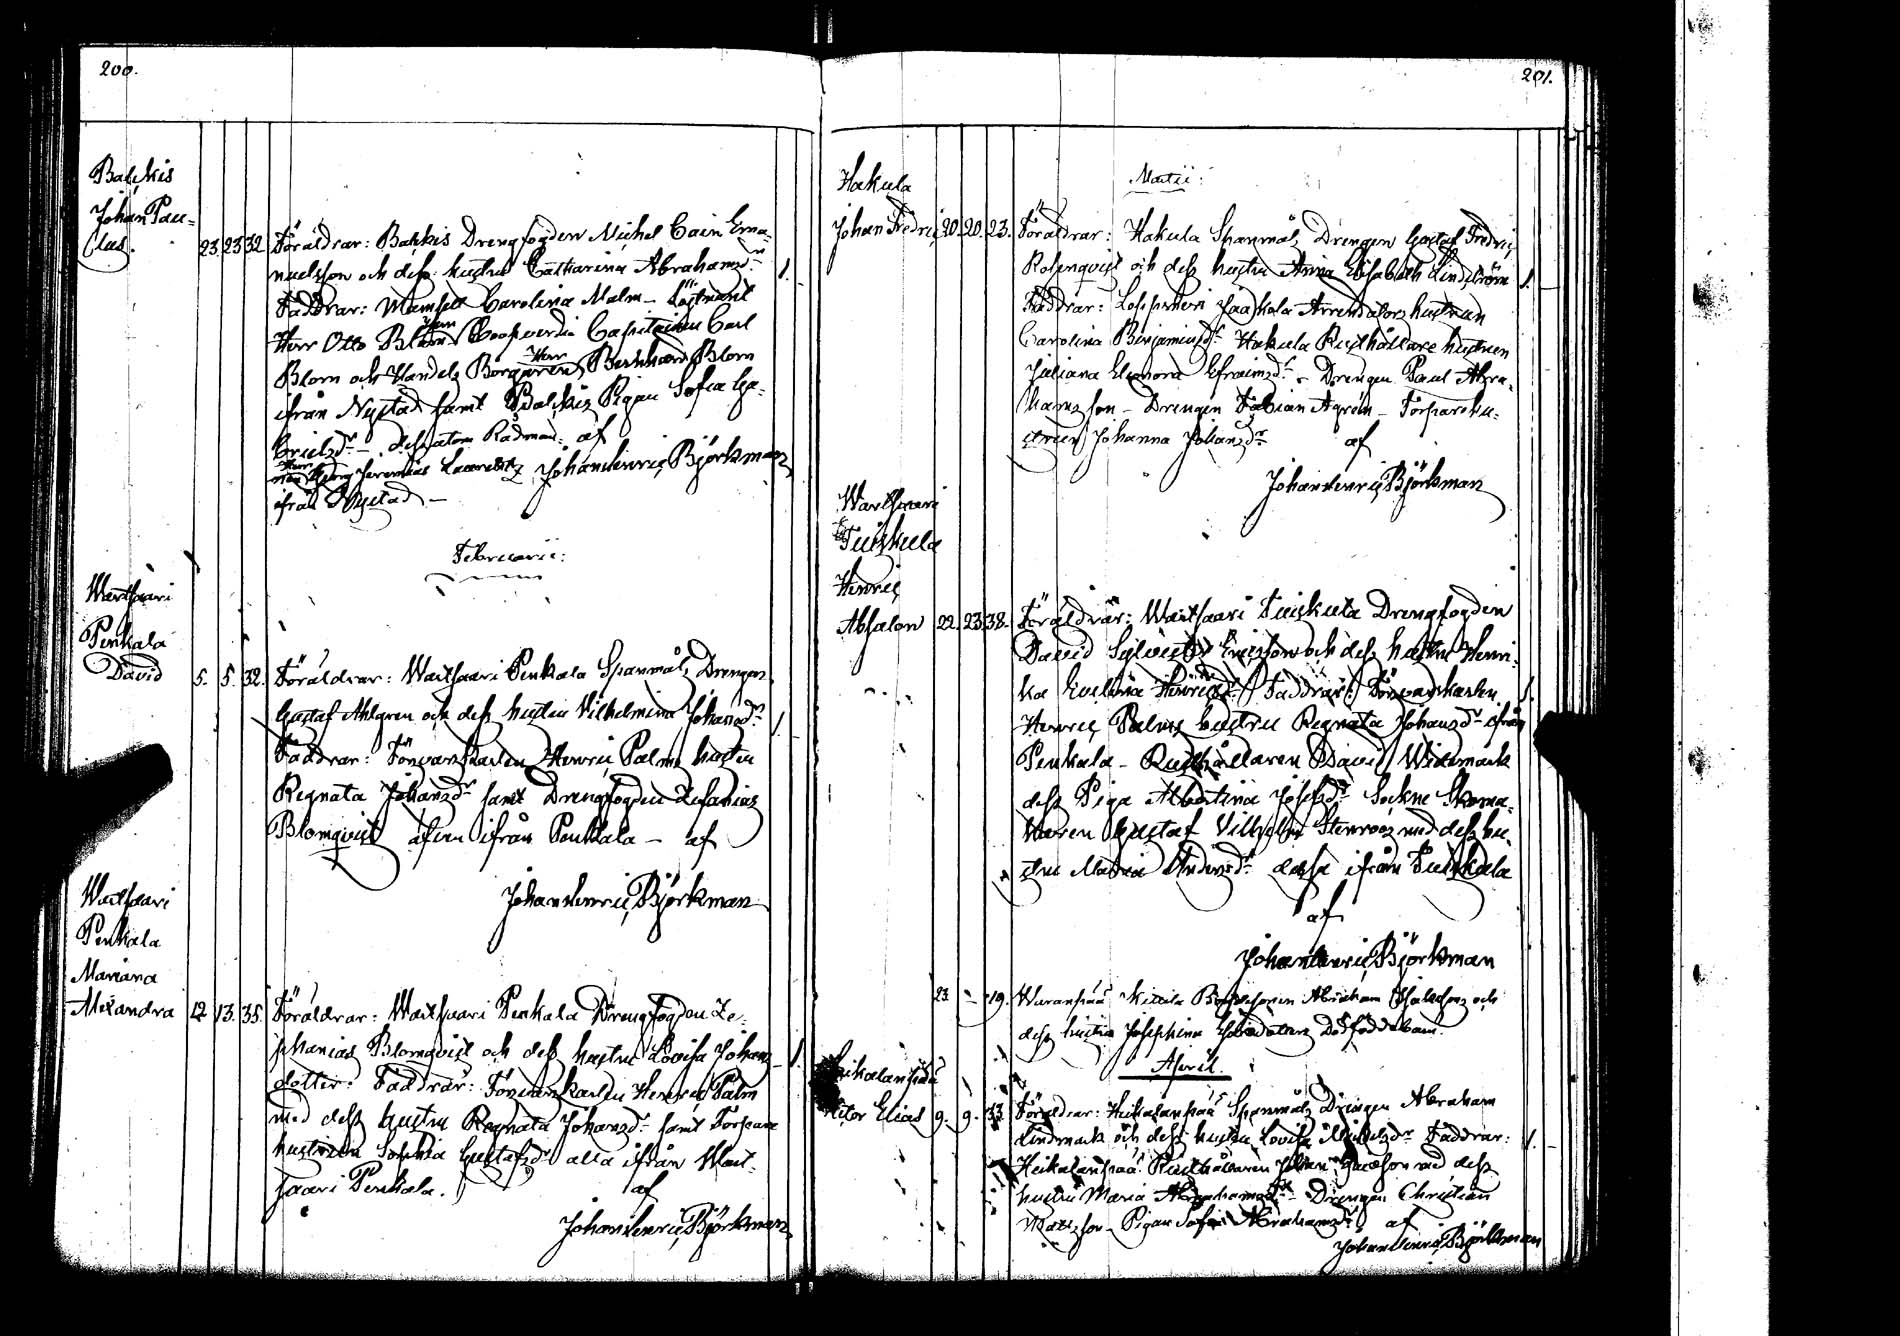 200.
Balckis
Johan Pau-
lus.
23. 23 32. Föräldrar: Balkis Drengfogden Michel Cain Ema-
nuelsson och dess hustru Catharina Abrahamsdr 1.
Faddrar: Mamsell Carolina Malm - Löjtnant
Herr Otto Blom Coopverdie Capitainen Carl
Blom och Handels Borgaren Herr Bernhard Blom
ifrån Nystad samt Balckis Pigan Sofia Ga-
brielsdr - dessutom Rådman af
Herr Jeremias Johan Henric Björkman
ifrån Nystad -
Februarii:
Wartsaari
Penkala
David
5. 5. 32. Föräldrar: Wartsaari Penkala Spanmåls Drengen
Gustaf Ahlgren och dess hustru Vilhelmina Johansdr 1.
Faddrar: Försvarskarlen Henric Palms hustru
Regnata Johansdr samt Drengfogden Zefanias
Blomqvist äfven ifrån Penkala - af
Johan Henric Björkman
Wartsaari
Penkala
Mariana
Alexandra
12 13. 35. Föräldrar: Wartsaari Penkala Drengfogden Ze-
phanias Blomqvist och dess hustru Lovisa Johans 1.
dotter: Faddrar: Försvarskarlen Henric Palm
med dess hustru Regnata Johansdr samt Torpare
hustrun Sophia Gustafsdr alla ifrån Wart-
saari Penkala. af
Johan Henric Björkman
201.
Martii:
Hakula
Johan Fredric 20. 20. 23. Föräldrar: Hakula Spanmåls Drengen Gustaf Fredric
Rosenqvist och dess hustru Anna Elisabeth Lindström 1.
Faddrar: Jaakola Arrendators hustrun
Carolina Benjaminsdr Hakula Rusthållare hustrun
Juliana Eleonora Efraimsdr - Drengen Paul Abra-
hamsson - Drengen Fabian Agrén - Torparehu-
strun Johanna Johansdr af
Johan Henric Björkman
Wartsaari
Tuiskula
Henric
Absalon 22. 23 38. Föräldrar: Wartsaari Tuiskula Drengfogden
David Sylvester Ericsson och dess hustru Henri-
ka Henricsdr Faddrar: Försvarskarlen 1.
Henric Palms hustru Regnata Johansdr ifrån
Penkala - Rusthållaren David Widemark
dess Piga Albertina Josefsdr Sockne Skoma-
karen Gustaf Vilhelm Stenroos med dess hu-
stru Maria Andersdr dessa ifrån Tuiskula
af
Johan Henric Björkman
23. - 19. Abraham och
dess hustru Josephina Dödfödda barn.
April.
Heikolanpää
Victor Elias 9. 9. 33. Föräldrar: Heikolanpää Spanmåls Drengen Abraham
Lindmark och dess hustru Lovisa Michelsdr Faddrar: 1.
Heikolanpää Rusthållaren Johan med dess
hustru Maria Abrahamsdr - Drengen Christian
Matsson - Pigan Sofia Abrahamsdr af
Johan Henric Björkman